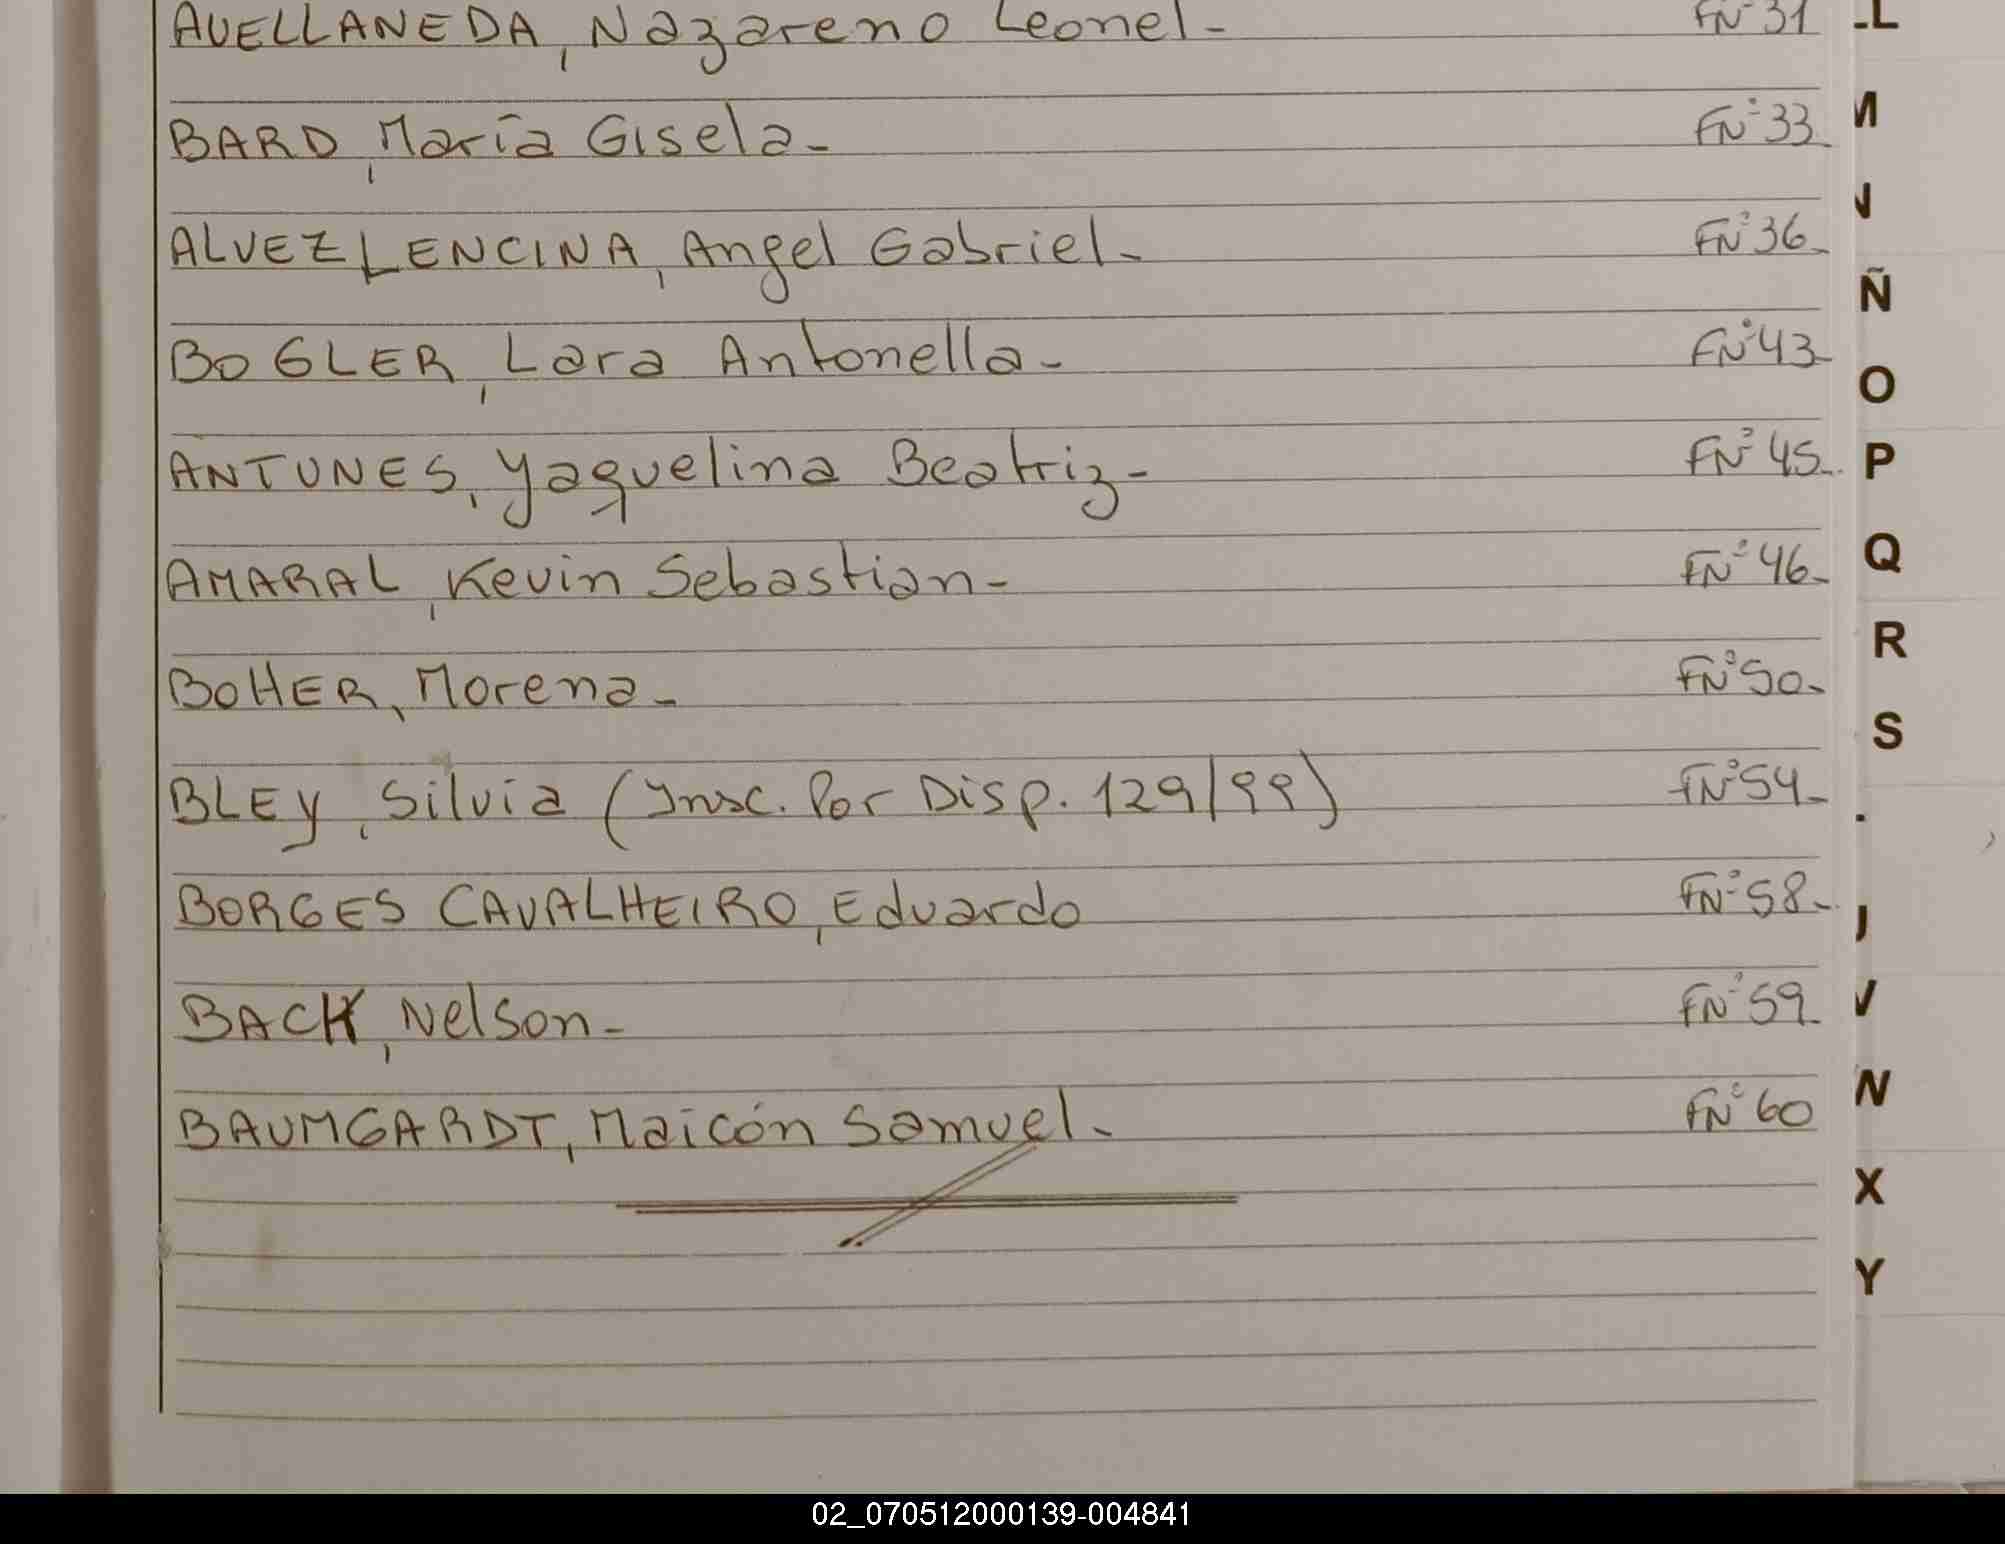 AVELLANEDA, Nazareno Leonel- FNº31
BARD, María Gisela- FNº33
ALVEZ LENCINA, Angel Gabriel- FNº36-
BOGLER, Lara Antonella- FNº43-
ANTUNES, Yaquelina Beatriz- FNº45-
AMARAL, Kevin Sebastian- FNº46-
BOHER, Morena- FNº50-
BLEY, Silvia (Ynsc. Por Disp. 129/99) FNº54-
BORGES CAVALHEIRO, Eduardo FNº58-
BACK, Nelson- FNº59-
BAUMGARDT, Maicón Samuel- FNº60
LL
M
N
Ñ
O
P
Q
R
S
U
V
W
X
Y
02_070512000139-004841